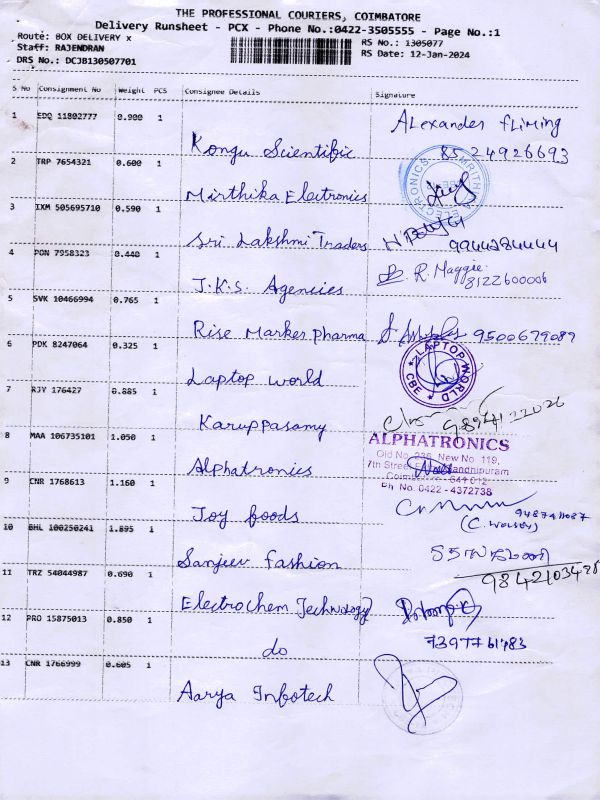 THE PROFESSIONAL COURIERS, COIMBATORE
Delivery Runsheet - PCX - Phone No.:0422-3505555 - Page No.:1
Route: BOX DELIVERY x
RS No.: 1305077
Staff: RAJENDRAN
RS Date: 12-Jan-2024
DRS No.: DCJB130507701
S No Consignment No Weight PCS Consignee Details Signature
1 EDQ 11802777 0.900 1 Kongu Scientific Alexander fliming
85 24926693
2 TRP 7654321 0.600 1 Mirthika Electronics
3 IXM 505695710 0.590 1 Sri Lakshmi Traders 9944284444
4 PON 7958323 0.440 1 J.K.S. Agencies R. Maggie
8122600006
5 SVK 10466994 0.765 1 Rise Marker pharma 9500679089
6 PDK 8247064 0.325 1 Laptop world LAPTOP WORLD CBE
7 RJY 176427 0.885 1 Karuppasamy
8 MAA 106735101 1.050 1 Alphatronics ALPHATRONICS
Old No. 236, New No. 119,
7th Street Gandhipuram
Coimbatore - 641 012
Ph No. 0422 - 4372738
9 CNR 1768613 1.160 1 Joy foods
10 BHL 100250241 1.895 1 Sanjeev fashion
11 TRZ 54044987 0.690 1 Electrochem Technology
12 PRO 15875013 0.850 1 do
13 CNR 1766999 0.605 1 Aarya Infotech